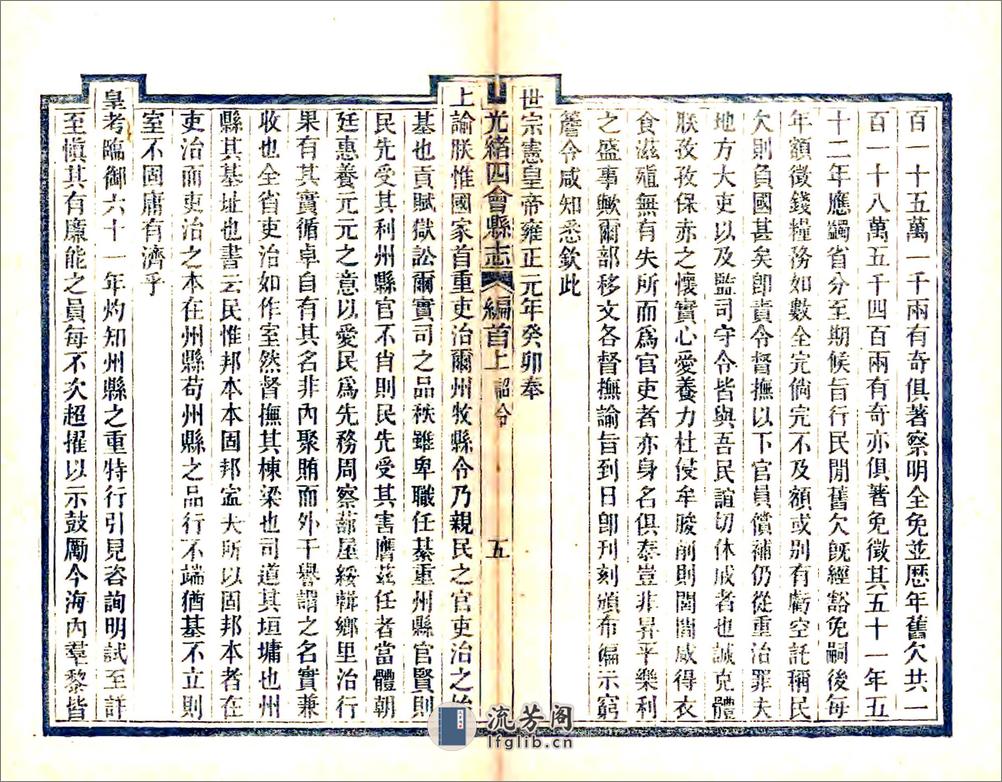 百一十五萬一千兩有奇俱著察明全免並歷年舊欠共一
百一十八萬五千四百兩有奇亦俱著免徵其五十一年五
十二年應蠲省分至期候旨行民閒舊欠旣經豁免嗣後每
年額徵錢糧務如數全完倘完不及額或别有虧空託稱民
欠則負國甚矣卽責令督撫以下官員償補仍從重治罪夫
地方大吏以及監司守令皆與吾民誼切休戚者也誠克體
朕孜孜保赤之懷實心愛養力杜侵牟朘削則閭閻咸得衣
食滋殖無有失所而爲官吏者亦身名俱泰豈非昇平樂利
之盛事歟爾部移文各督撫諭旨到日卽刊刻頒布徧示窮
簷令咸知悉欽此
世宗憲皇帝雍正元年癸卯奉
光緒四會縣志 編首上 詔令 五
上諭朕惟國家首重吏治爾州牧縣令乃親民之官吏治之始
基也貢賦獄訟爾實司之品秩雖卑職任綦重州縣官賢則
民先受其利州縣官不肖則民先受其害膺茲任者當體朝
廷惠養元元之意以愛民爲先務周察蔀屋綏輯鄉里治行
果有其實循卓自有其名非內聚賄而外干譽謂之名實兼
收也全省吏治如作室然督撫其棟梁也司道其垣墉也州
縣其基址也書云民惟邦本本固邦寍夫所以固邦本者在
吏治而吏治之本在州縣苟州縣之品行不端猶基不立則
室不固庸有濟乎
皇考臨御六十一年灼知州縣之重特行引見咨詢明試至詳
至愼其有廉能之員每不次超擢以示鼓勵今海內羣黎皆
流芳閣
lfglib.cn